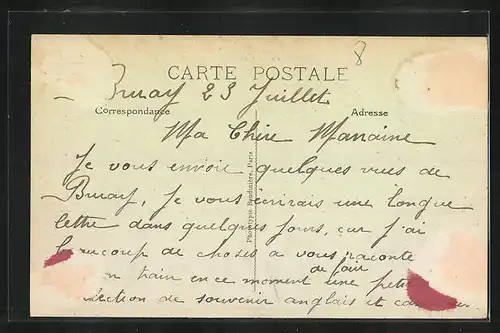 8
CARTE POSTALE
Bruay 23 Juillet
Correspondance
Adresse
Ma Chère Marraine
Je vous envoie quelques vues de
Bruay, Je vous écrirais une longue
lettre dans quelques jours, car j'ai
beaucoup de choses a vous raconte
de faire
train en ce moment une petite
de souvenir anglais et
Phototypie Baudinière, Paris